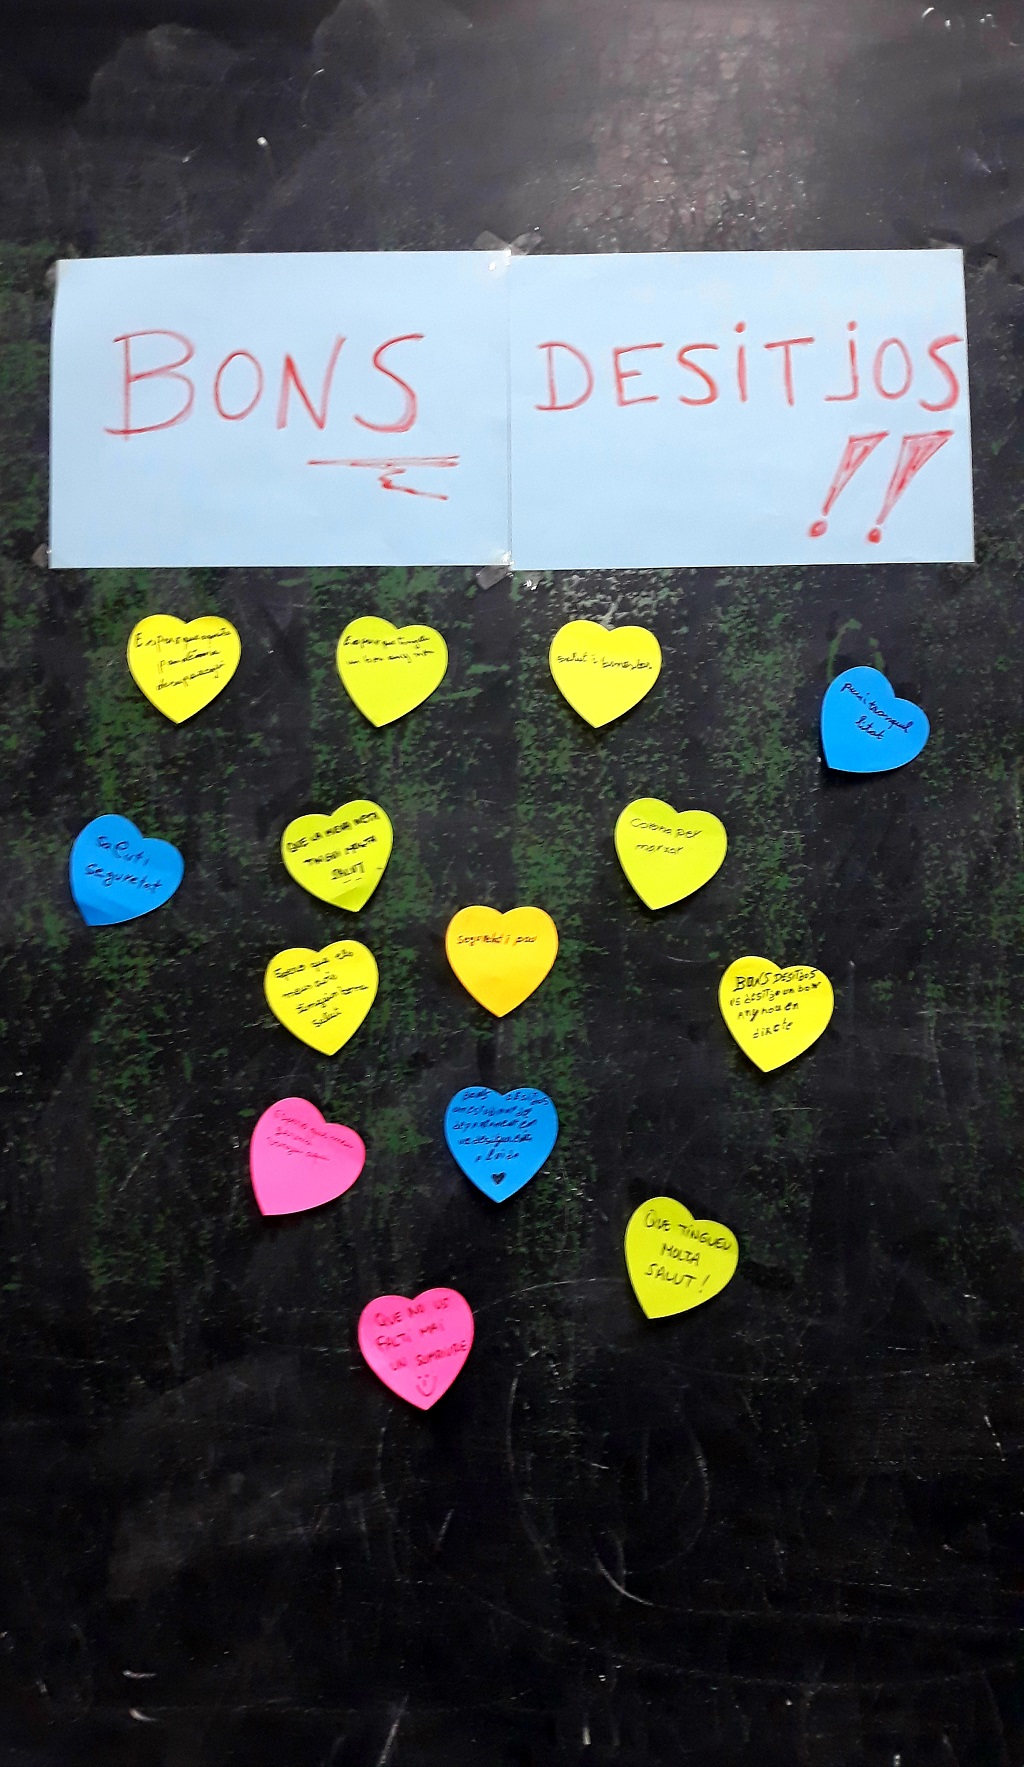 BONS DESITJOS !!
Espero que aquesta
pandèmia
desaparegui
Espero que tingueu
un bon any nou
salut i benestar
pau i tranquil
litat
Salut i
seguretat
QUE LA MEVA NETA
TINGUI MOLTA
SALUT
Corona per
marxar
Seguretat i pau
Espero que els
meus avis
tinguin bona
salut
BONS DESITJOS
us desitjo un bon
Any nou en
directe
BONS DESITJOS
QUE TINGUEU
MOLTA
SALUT!
QUE NO US
FALTI MAI
UN SOMRIURE